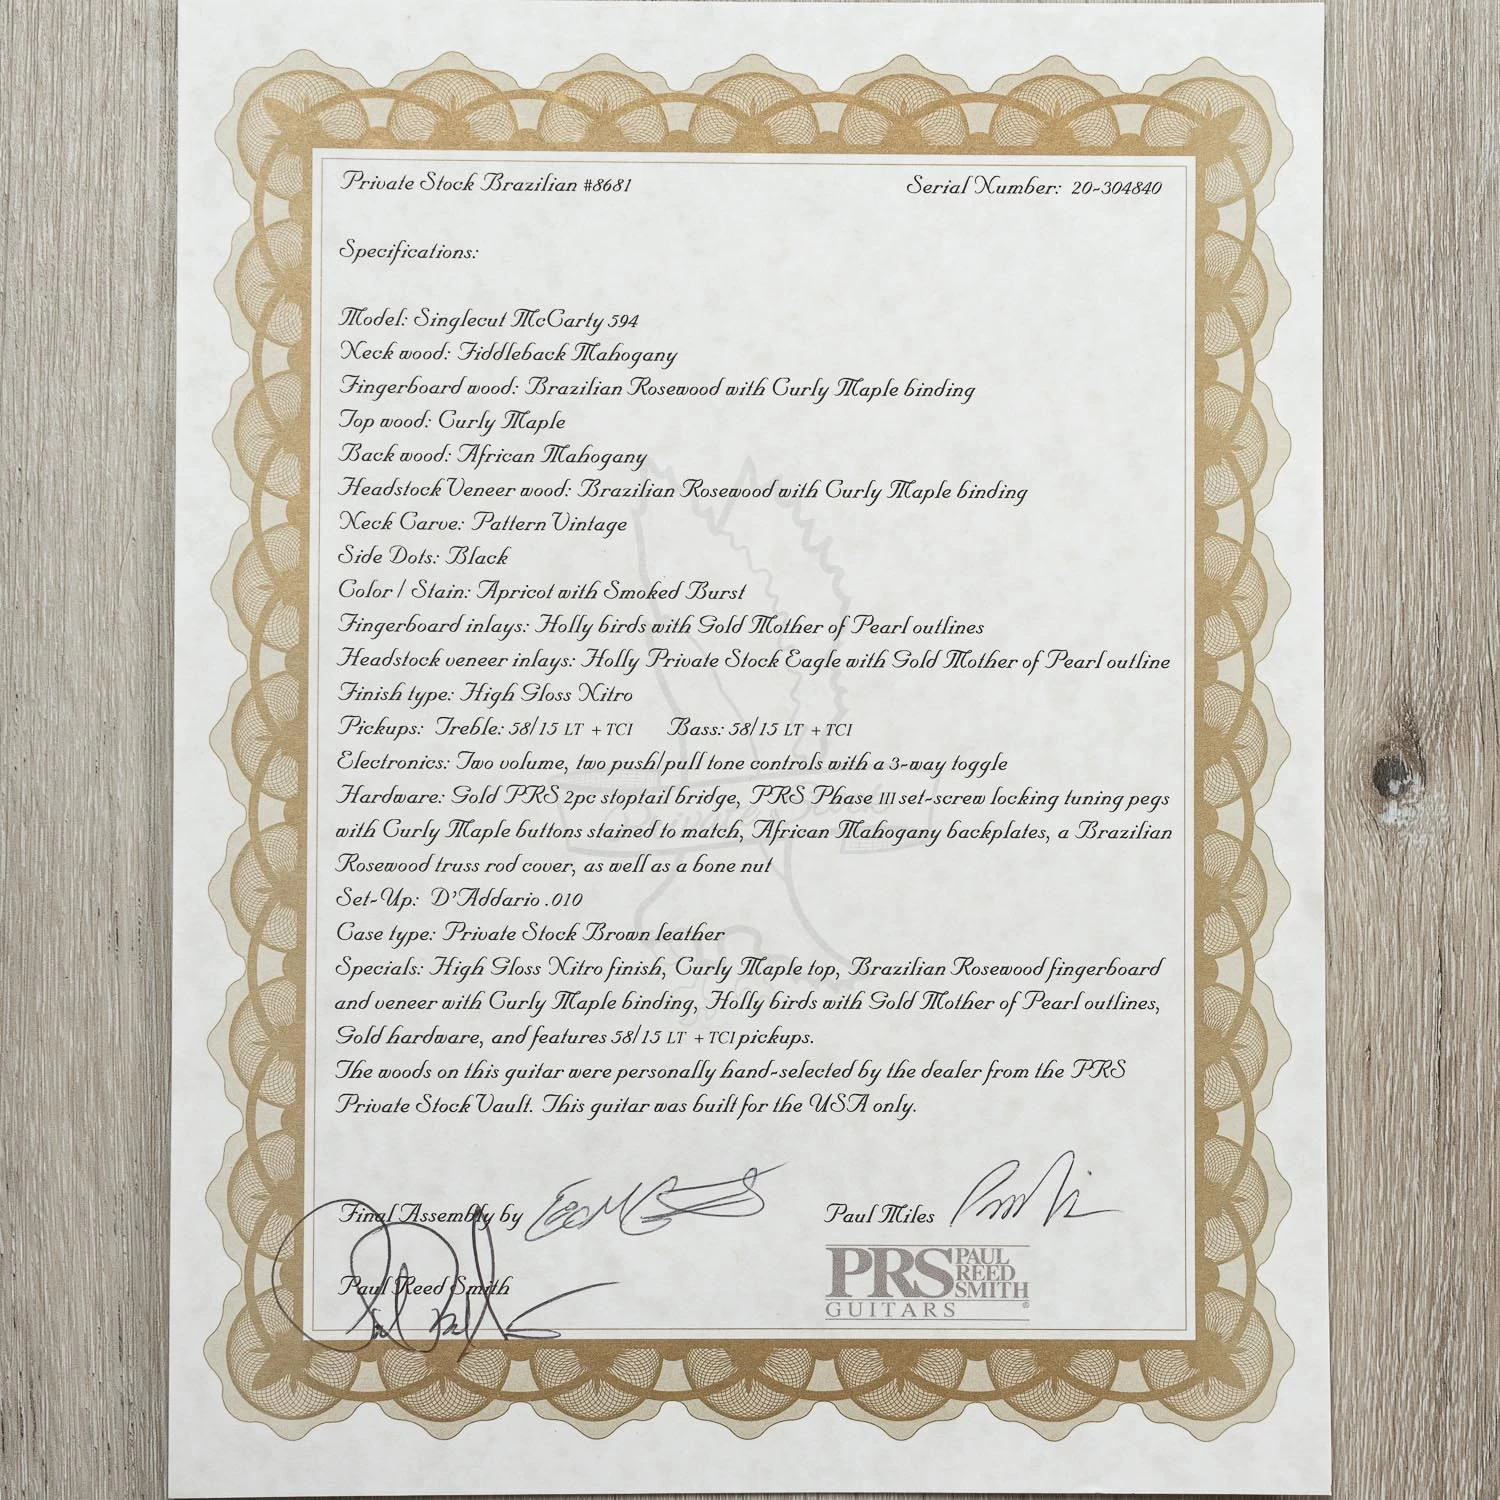 Private Stock Brazilian #8681 Serial Number: 20-304840
Specifications:
Model: Singlecut McCarty 594
Neck wood: Fiddleback Mahogany
Fingerboard wood: Brazilian Rosewood with Curly Maple binding
Top wood: Curly Maple
Back wood: African Mahogany
Headstock Veneer wood: Brazilian Rosewood with Curly Maple binding
Neck Carve: Pattern Vintage
Side Dots: Black
Color / Stain: Apricot with Smoked Burst
Fingerboard inlays: Holly birds with Gold Mother of Pearl outlines
Headstock veneer inlays: Holly Private Stock Eagle with Gold Mother of Pearl outline
Finish type: High Gloss Nitro
Pickups: Treble: 58/15 LT + TCI Bass: 58/15 LT + TCI
Electronics: Two volume, two push/pull tone controls with a 3-way toggle
Hardware: Gold PRS 2pc stoptail bridge, PRS Phase III set-screw locking tuning pegs
with Curly Maple buttons stained to match, African Mahogany backplates, a Brazilian
Rosewood truss rod cover, as well as a bone nut
Set-Up: D'Addario .010
Case type: Private Stock Brown leather
Specials: High Gloss Nitro finish, Curly Maple top, Brazilian Rosewood fingerboard
and veneer with Curly Maple binding, Holly birds with Gold Mother of Pearl outlines,
Gold hardware, and features 58/15 LT + TCI pickups.
The woods on this guitar were personally hand-selected by the dealer from the PRS
Private Stock Vault. This guitar was built for the USA only.
Final Assembly by
Paul Miles
Paul Reed Smith
PRS PAUL REED SMITH
GUITARS ®